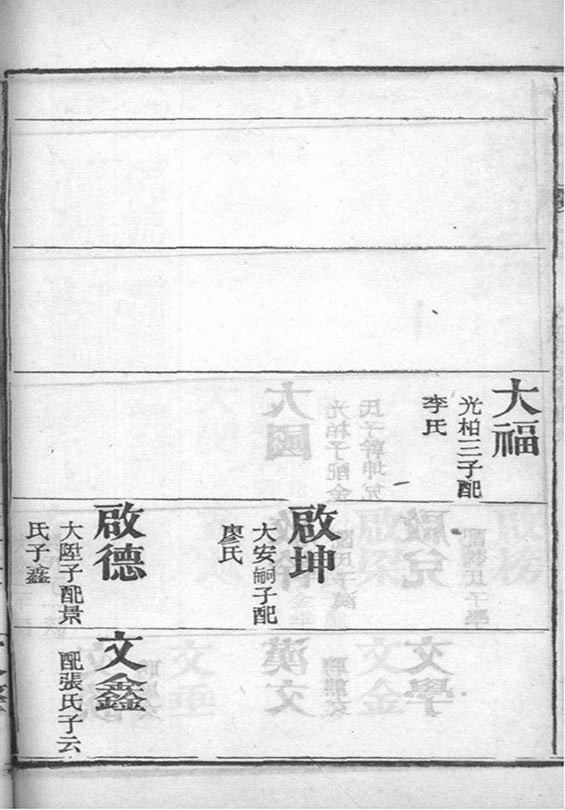 大福
光柏三子配
李氏
啟坤
大安嗣子配
廖氏
啟德
大陞子配景
氏子鑫
文鑫
配張氏子云